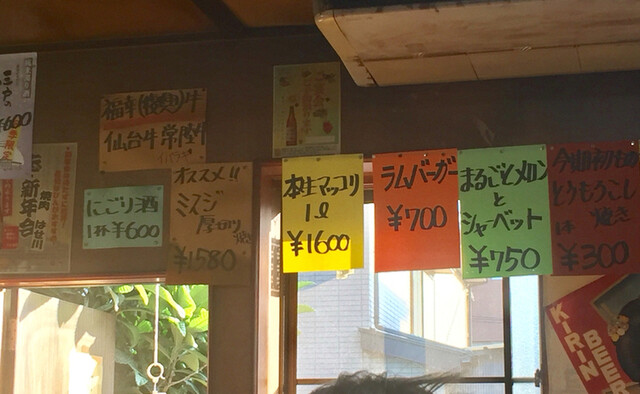 ¥600
福幸(複製)牛
仙台牛 常陸牛
新年会
焼肉 はせ川
にごり酒
1杯¥600
オススメ!!
ミスジ
厚切り
¥1580
本生マッコリ
1ℓ
¥1600
ラムバーガー
¥700
まるごとメロン
と
シャーベット
¥750
とうもろこし
1本 焼き
¥300
KIRIN
BEER